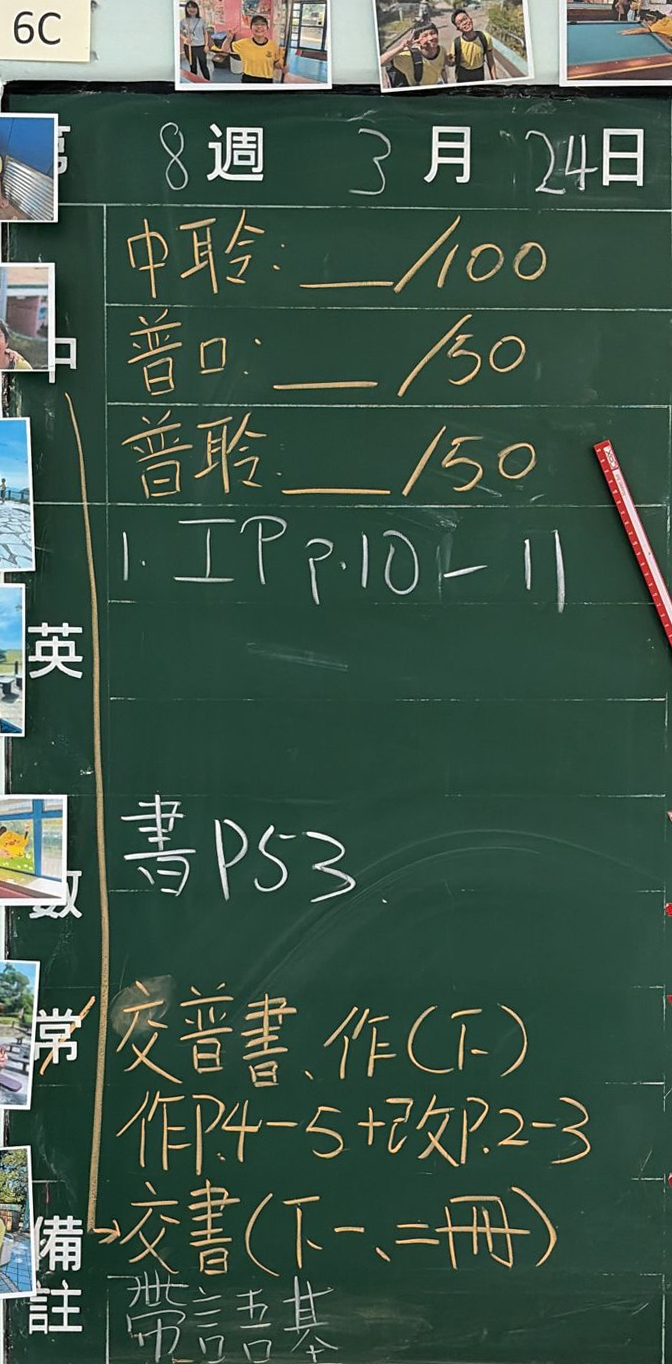 6C
第 8 週 3 月 24 日
中聆: __/100
中
普口: __/50
普聆: __/50
1. IP p.10-11
英
書P53
數
常
交普書、作(下)
作P.4-5+改P.2-3
備註
→交書(下一、二冊)
帶語基